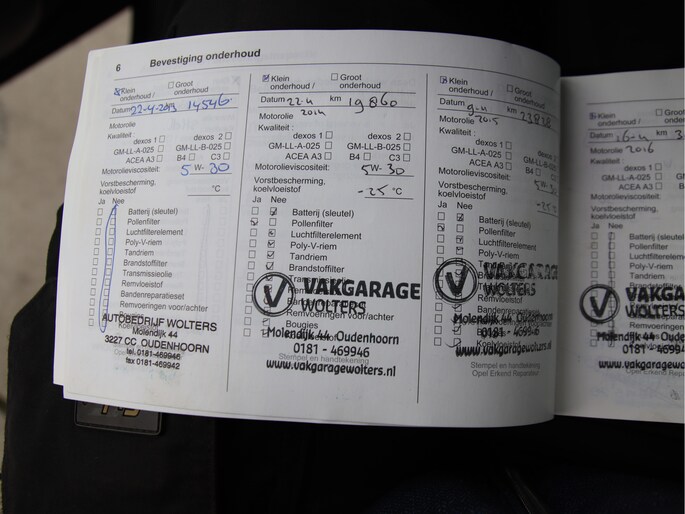 6 Bevestiging onderhoud
Klein onderhoud / Groot onderhoud
Datum 22-4-2013 14546
Motorolie
Kwaliteit :
dexos 1 dexos 2
GM-LL-A-025 GM-LL-B-025
ACEA A3 B4 C3
Motorolieviscositeit:
5 W- 30
Vorstbescherming, koelvloeistof °C
Ja Nee
Batterij (sleutel)
Pollenfilter
Luchtfilterelement
Poly-V-riem
Tandriem
Brandstoffilter
Transmissieolie
Remvloeistof
Bandenreparatieset
Remvoeringen voor/achter
AUTOBEDRIJF WOLTERS
Molendijk 44
3227 CC OUDENHOORN
tel. 0181-469946
fax 0181-469942
Klein onderhoud / Groot onderhoud
Datum 22-4 2014 km 19860
Motorolie
Kwaliteit :
dexos 1 dexos 2
GM-LL-A-025 GM-LL-B-025
ACEA A3 B4 C3
Motorolieviscositeit:
5W-30
Vorstbescherming, koelvloeistof -25 °C
Ja Nee
Batterij (sleutel)
Pollenfilter
Luchtfilterelement
Poly-V-riem
Tandriem
Brandstoffilter
VAKGARAGE
WOLTERS
Remvoeringen voor/achter
Bougies
Molendijk 44 Oudenhoorn
0181 - 469946
Stempel en handtekening
www.vakgaragewolters.nl
Klein onderhoud / Groot onderhoud
Datum 9-4 2015 km 23828
Motorolie
Kwaliteit :
dexos 1 dexos 2
GM-LL-A-025 GM-LL-B-025
ACEA A3 B4 C3
Motorolieviscositeit:
5W-30
Vorstbescherming, koelvloeistof -25
Ja Nee
Batterij (sleutel)
Pollenfilter
Luchtfilterelement
Poly-V-riem
Tandriem
Brandstoffilter
VAKGARAGE
WOLTERS
Remvloeistof
Remvoeringen
Molendijk 44 Oudenhoorn
0181 - 46994
www.vakgaragewolters.n
Stempel en handtekening
Opel Erkend Reparateur
Klein onderhoud /
Datum 16-4 2016 km
Motorolie
Kwaliteit :
dexos 1
GM-LL-A-025
ACEA A3
Motorolieviscositeit:
Vorstbescherming, koelvloeistof
Ja Nee
Batterij (sleutel)
Pollenfilter
Luchtfilterelement
Poly-V-riem
Tandriem
VAKGA
WOLTERS
Molendijk 44 Oude
0181-469
www.vakgaragew
Opel Erkend Rep